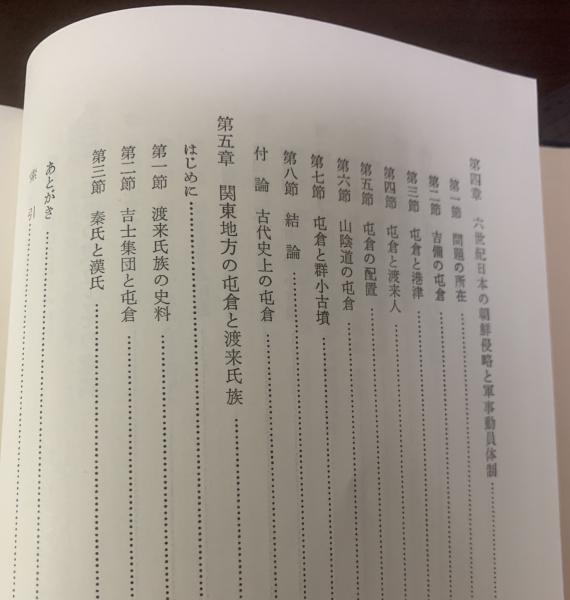 第四章 六世紀日本の朝鮮侵略と軍事動員体制
第一節 問題の所在
第二節 吉備の屯倉
第三節 屯倉と港津
第四節 屯倉と渡来人
第五節 屯倉の配置
第六節 山陰道の屯倉
第七節 屯倉と群小古墳
第八節 結論
付論 古代史上の屯倉
第五章 関東地方の屯倉と渡来氏族
はじめに
第一節 渡来氏族の史料
第二節 吉士集団と屯倉
第三節 秦氏と漢氏
あとがき
索引